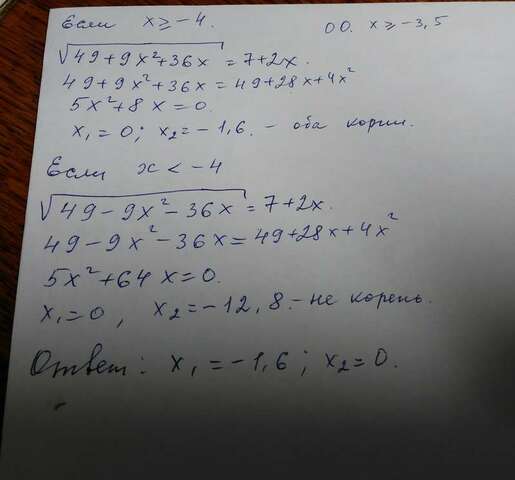 Если x ≥ -4.        ОО. x ≥ -3,5
√49+9x²+36x = 7+2x.
49+9x²+36x = 49+28x+4x²
5x²+8x=0.
x₁=0; x₂=-1,6. - оба корни.
Если x < -4
√49-9x²-36x = 7+2x.
49-9x²-36x=49+28x+4x²
5x²+64x=0.
x₁=0, x₂=-12,8.-не корень.
Ответ: x₁=-1,6; x₂=0.